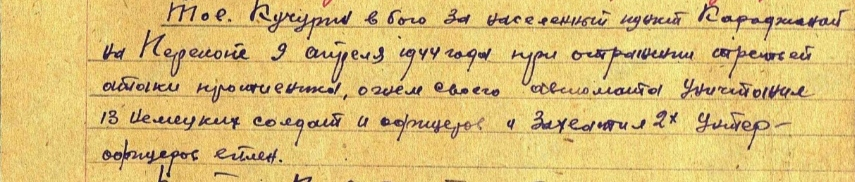 Тов. Кучурин в бою за населенный пункт Караджанай
на Перекопе 9 апреля 1944 года при отражении третьей
атаки противника, огнем своего автомата уничтожил
13 немецких солдат и офицеров и захватил 2х унтер-
офицеров в плен.